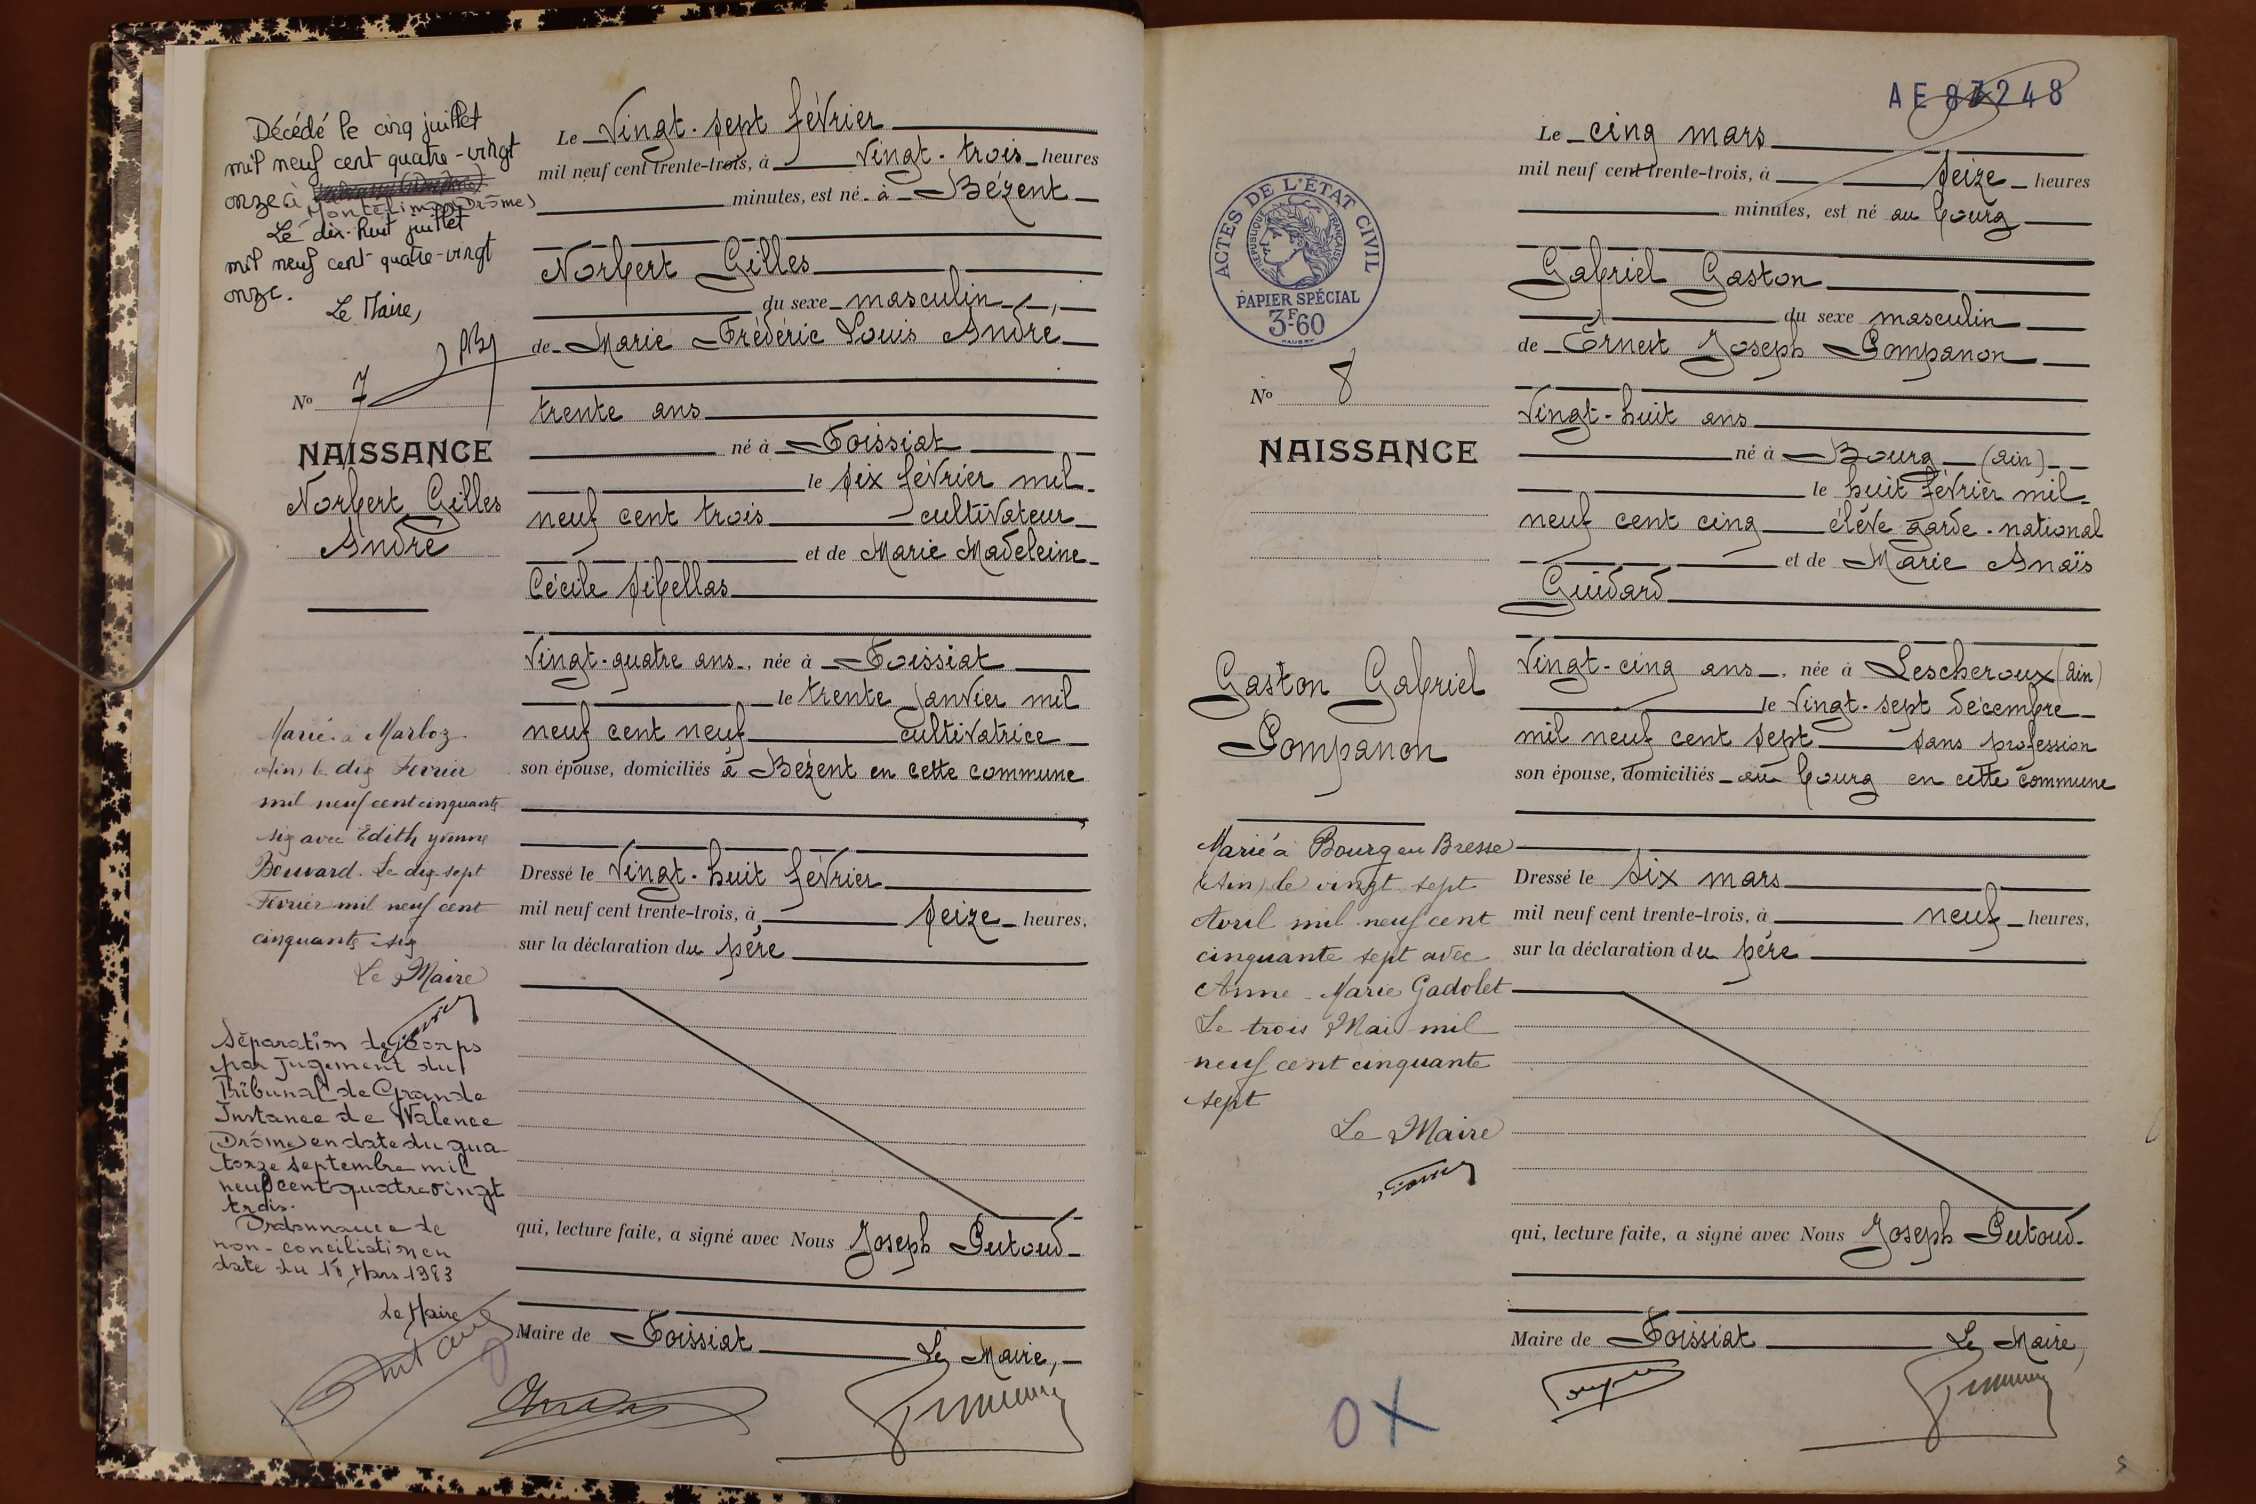 Décédé le cinq juillet
mil neuf cent quatre-vingt
onze à
Montélimar (Drôme)
Le dix-huit juillet
mil neuf cent quatre-vingt
onze.
Le Maire,
N° 7
NAISSANCE
Norbert Gilles
André
Marié à Marboz
(Ain) le dix Février
mil neuf cent cinquante
six avec Edith Yvonne
Bouvard. Le dix-sept
Février mil neuf cent
cinquante six
Le Maire
Séparation de Corps
par Jugement du
Tribunal de Grande
Instance de Valence
(Drôme) en date du qua
torze septembre mil
neuf cent quatre vingt
trois.
Ordonnance de
non-conciliation en
date du 18 Mars 1983
Le Maire
Le Vingt-sept février
mil neuf cent trente-trois, à Vingt-trois heures
minutes, est né à Bézent
Norbert Gilles
du sexe masculin
de Marie Fréderic Louis André
trente ans
né à Foissiat
le six février mil
neuf cent trois cultivateur
et de Marie Madeleine
Cécile Sibellas
Vingt-quatre ans, née à Foissiat
le trente janvier mil
neuf cent neuf cultivatrice
son épouse, domiciliés à Bézent en cette commune
Dressé le Vingt-huit février
mil neuf cent trente-trois, à seize heures,
sur la déclaration du père
qui, lecture faite, a signé avec Nous Joseph Putoud
Maire de Foissiat Le Maire,
AE 87248
ACTES DE L'ÉTAT CIVIL
RÉPUBLIQUE FRANÇAISE
PAPIER SPÉCIAL
3F60
N° 8
NAISSANCE
Gaston Gabriel
Pompanon
Marié à Bourg en Bresse
(Ain) le vingt sept
Avril mil neuf cent
cinquante sept avec
Anne-Marie Gadolet
Le trois Mai mil
neuf cent cinquante
sept
Le Maire
Le cinq mars
mil neuf cent trente-trois, à seize heures
minutes, est né au bourg
Gabriel Gaston
du sexe masculin
de Ernest Joseph Pompanon
Vingt-huit ans
né à Bourg (Ain)
le huit février mil
neuf cent cinq élève garde-national
et de Marie Anaïs
Guidard
Vingt-cinq ans, née à Lescheroux (Ain)
le Vingt-sept décembre
mil neuf cent sept sans profession
son épouse, domiciliés au bourg en cette commune
Dressé le six mars
mil neuf cent trente-trois, à neuf heures,
sur la déclaration du père
qui, lecture faite, a signé avec Nous Joseph Putoud
Maire de Foissiat Le Maire,
0 X